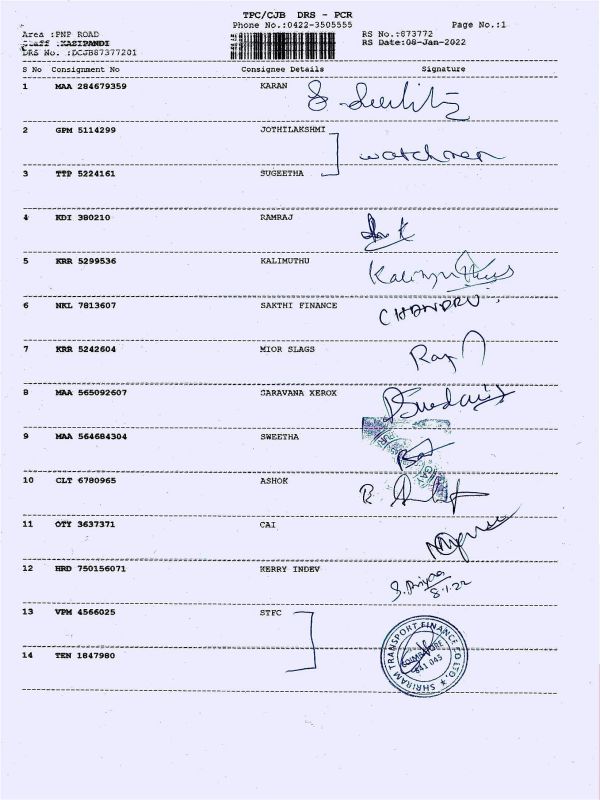 TPC/CJB DRS - PCR
Phone No.:0422-3505555 Page No.:1
Area :PNP ROAD RS No.:873772
Staff :KASIPANDI RS Date:08-Jan-2022
DRS No. :DCJB87377201
S No Consignment No Consignee Details Signature
1 MAA 284679359 KARAN
2 GPM 5114299 JOTHILAKSHMI
watchmen
3 TTP 5224161 SUGEETHA
4 KDI 380210 RAMRAJ
5 KRR 5299536 KALIMUTHU
6 NKL 7813607 SAKTHI FINANCE CHANDRU
7 KRR 5242604 MIOR SLAGS
8 MAA 565092607 SARAVANA XEROX
9 MAA 564684304 SWEETHA
10 CLT 6780965 ASHOK
11 OTY 3637371 CAI
12 HRD 750156071 KERRY INDEV S. Priya
8.1.22
13 VPM 4566025 STFC
14 TEN 1847980
SHRIRAM TRANSPORT FINANCE CO LTD. ★
COIMBATORE
641 045